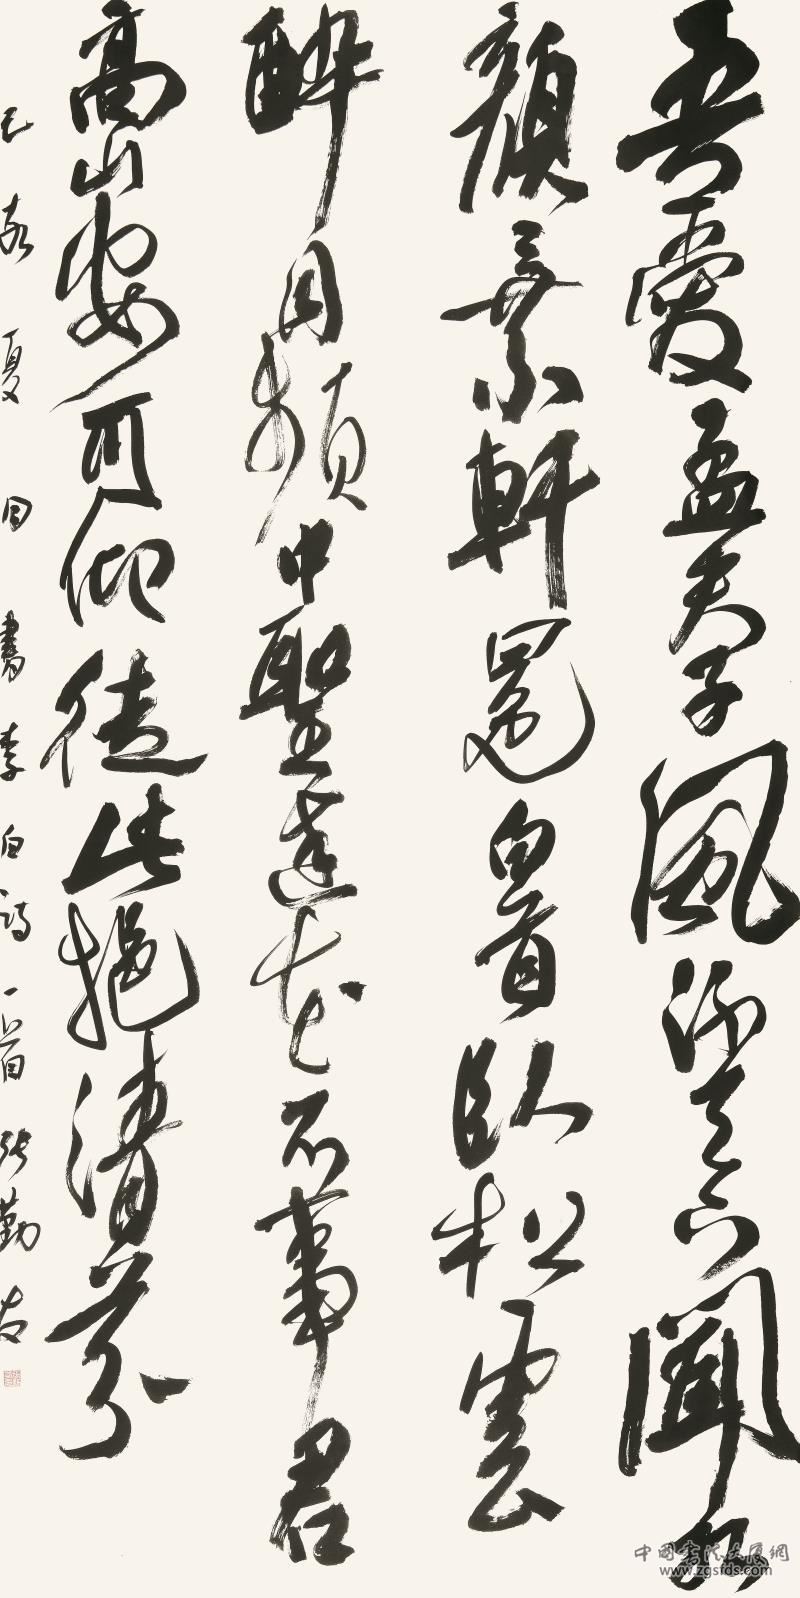 吾愛孟夫子風流天下聞紅
顏棄軒冕白首臥松雲
醉月頻中聖迷花不事君
高山安可仰徒此挹清芬
己亥夏日書李白詩一首張勤
中國書法大厦網
www.zgsfds.com